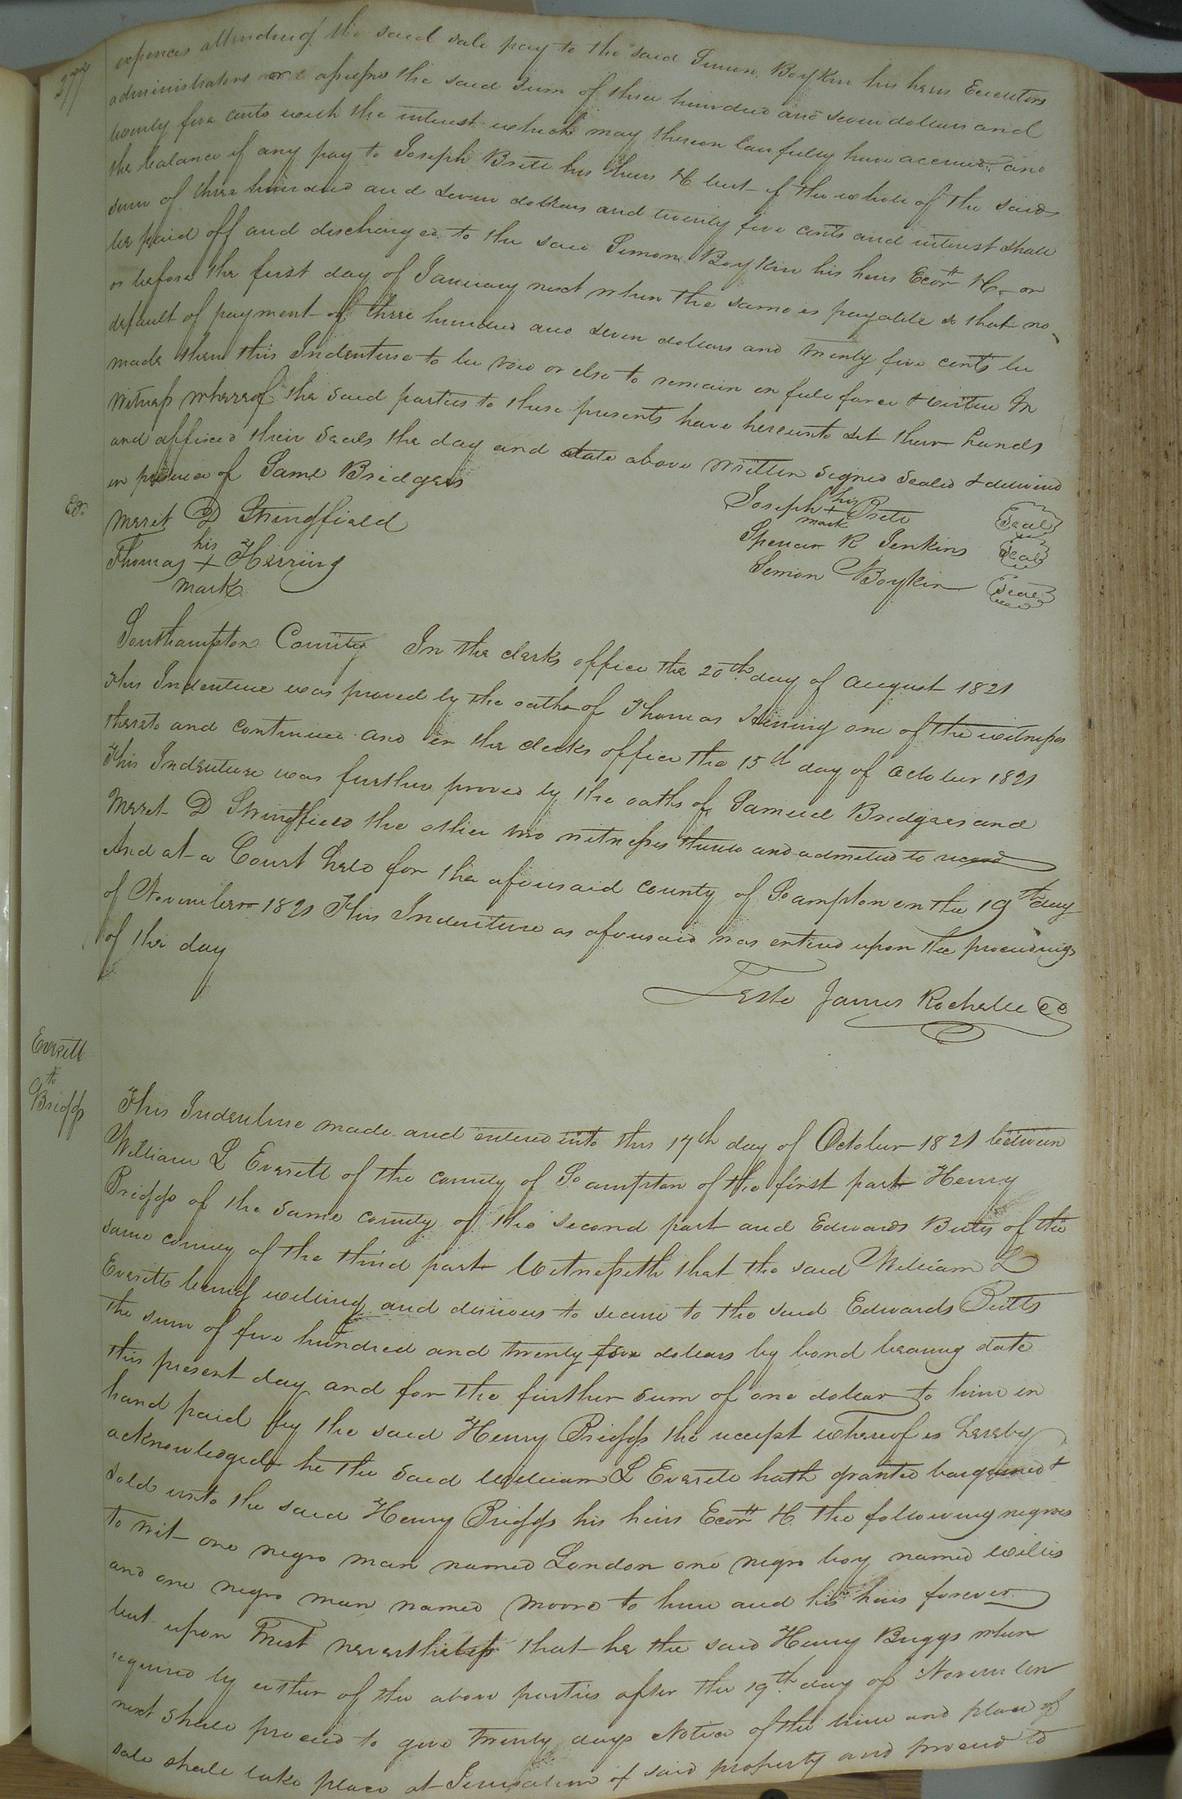 277
expences attending the said sale pay to the said Simon Boykin his heirs Executors
administrators or assigns the said sum of three hundred and seven dollars and
twenty five cents with the interest which may thereon lawfully have accrued and
the balance if any pay to Joseph Brett his heirs &c but if the whole of the said
sum of three hundred and seven dollars and twenty five cents and interest shall
be paid off and discharged to the said Simon Boykin his heirs Ecors &c on
or before the first day of January next when the same is payable so that no
default of payment of three hundred and seven dollars and twenty five cents be
made then this Indenture to be void or else to remain in full force & virtue In
witness whereof the said parties to these presents have hereunto set their hands
and affixed their seals the day and date above written signed sealed & delivered
in presence of Saml Bridgers
Ex.
Joseph his + mark Brett Seal
Meret D Stringfield
Spencer R Jenkins Seal
Thomas his + mark Herring
Simon Boykin Seal
Southampton County In the clerks office the 20th day of August 1821
This Indenture was proved by the oath of Thomas Herring one of the witnesses
thereto and continued and in the clerks office the 15th day of October 1821
This Indenture was further proved by the oaths of Samuel Bridgers and
Meret D Stringfield the other two witnesses thereto and admitted to record
And at a Court held for the aforesaid county of Soampton on the 19th day
of November 1821 This Indenture as aforesaid was entered upon the proceedings
of the day
Teste James Rochelle CC
Everett
to
Briggs
This Indenture made and entered into this 17th day of October 1821 between
William L Everett of the county of Soampton of the first part Henry
Briggs of the same county of the second part and Edwards Butts of the
same county of the third part Witnesseth that the said William L
Everett being willing and desirous to secure to the said Edwards Butts
the sum of five hundred and twenty five dollars by bond bearing date
this present day and for the further sum of one dollar to him in
hand paid by the said Henry Briggs the receipt whereof is hereby
acknowledged he the said William L Everett hath granted bargained &
sold unto the said Henry Briggs his heirs Ecors &c the following negroes
to wit one negro man named London one negro boy named Willis
and one negro man named Moore to him and his heirs forever
but upon Trust nevertheless that he the said Henry Briggs when
required by either of the above parties after the 19th day of November
next shall proceed to give twenty days Notice of the time and place of
sale shall take place at Jerusalem of said property and proceed to